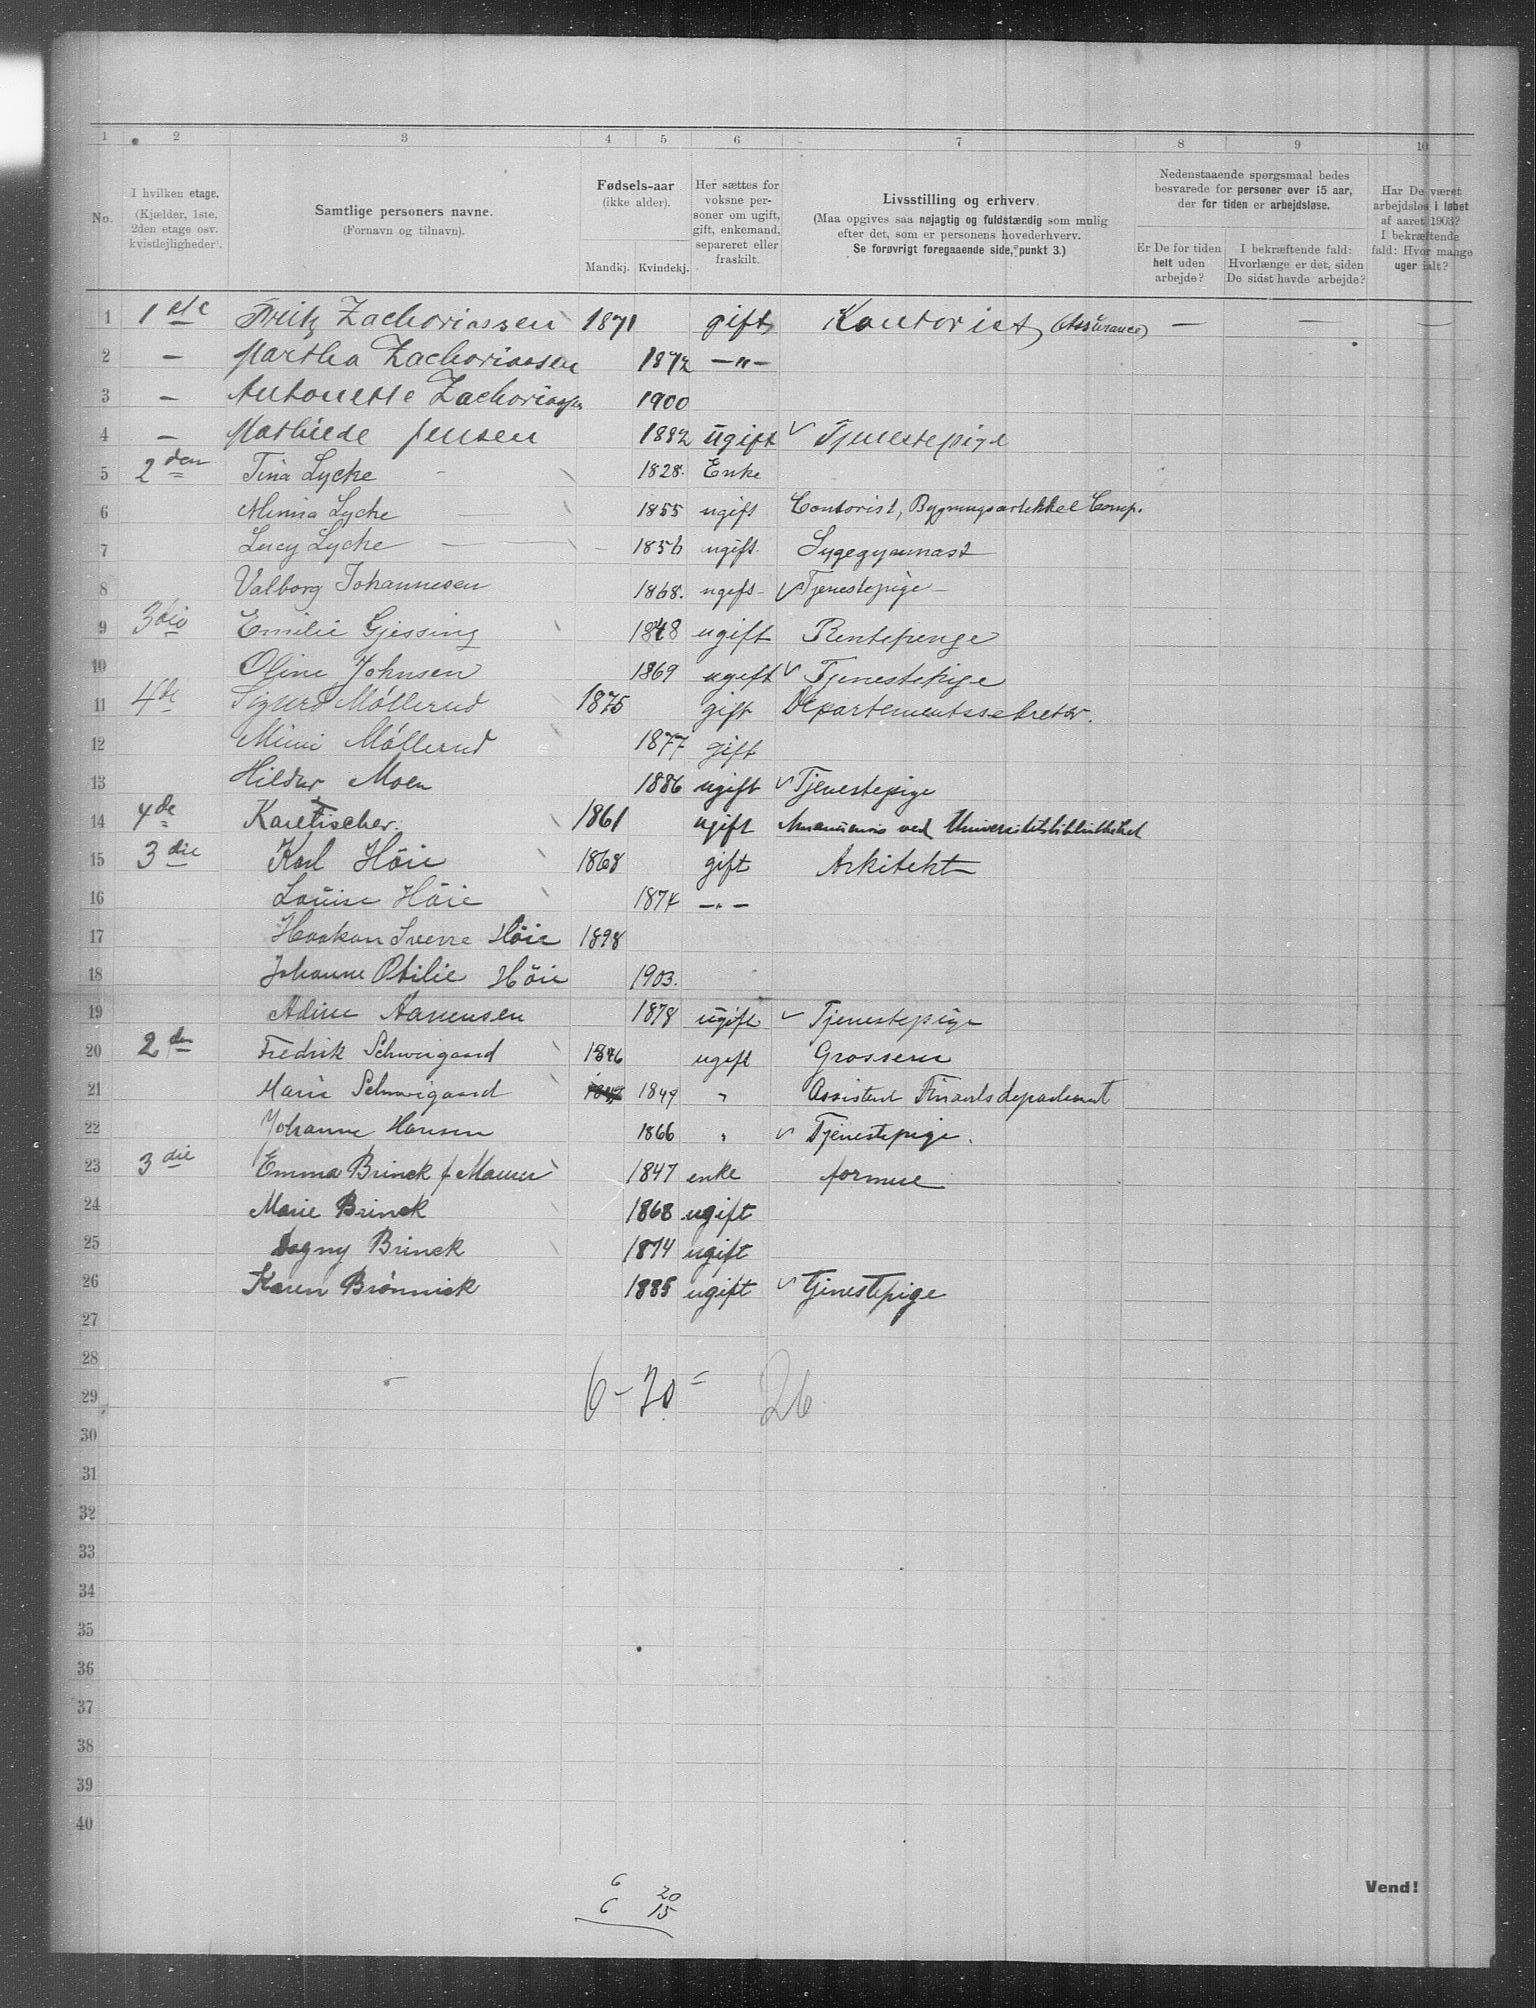 1 2 3 4 5 6 7 8 9 10
No.
I hvilken etage.
(Kjælder, 1ste,
2den etage osv.
kvistlejligheder).
Samtlige personers navne.
(Fornavn og tilnavn).
Fødsels-aar
(ikke alder).
Mandkj. Kvindekj.
Her sættes for
voksne per-
soner om ugift,
gift, enkemand,
separeret eller
fraskilt.
Livsstilling og erhverv.
(Maa opgives saa nøjagtig og fuldstændig som mulig
efter det, som er personens hovederhverv.
Se forøvrigt foregaaende side, punkt 3.)
Nedenstaaende spørgsmaal bedes
besvarede for personer over 15 aar,
der for tiden er arbejdsløse.
Er De for tiden
helt uden
arbejde?
I bekræftende fald:
Hvorlænge er det, siden
De sidst havde arbejde?
Har De været
arbejdsløs i løbet
af aaret 1903?
I bekræftende
fald: Hvor mange
uger ialt?
1 1ste Fritz Zachoriassen 1871 gift Kontorist (Assurance) — — —
2 — Martha Zachoriassen 1872 —"—
3 — Antonette Zachoriassen 1900
4 — Mathilde Jensen 1882 ugift Tjenestepige
5 2den Tina Lycke 1828. Enke
6 Minna Lycke 1855 ugift Contorist, Bygningsartikkel Comp.
7 Lucy Lycke 1856 ugift. Sygegymnast
8 Valborg Johannesen 1868. ugift Tjenestepige
9 3die Emilie Gjessing 1848 ugift Rentepenge
10 Oline Johnsen 1869 ugift Tjenestepige
11 4de Sigurd Møllerud 1875 gift Departementssekretær.
12 Mimi Møllerud 1877 gift
13 Hildur Moen 1886 ugift Tjenestepige
14 4de Kare Fischer. 1861 ugift Amanuensis ved Universitetsbibliotheket
15 3die Karl Höie 1868 gift Arkitekt
16 Louise Höie 1874 —"—
17 Haakon Sverre Höie 1898
18 Johanne Otilie Höie 1903.
19 Adine Aamensen 1878 ugift Tjenestepige
20 2den Fredrik Schweigaard 1846 ugift Grosserer
21 Marie Schweigaard 1849 " Assistent Finantsdepartement
22 Johanne Hansen 1866 " Tjenestepige.
23 3die Emma Brinck f Maurer 1847 enke formue
24 Marie Brinck 1868 ugift
25 Dagny Brinck 1874 ugift
26 Karen Brønnick 1885 ugift tjenestepige
27
28
29 6 - 20 = 26
30
31
32
33
34
35
36
37
38
39
40
Vend!
6 20
6 15